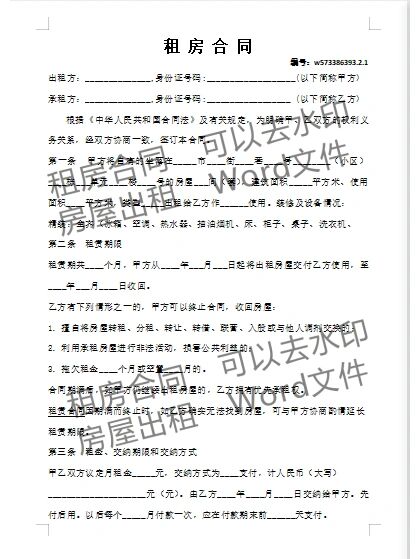 租房合同
编号：w573386393.2.1
出租方：______________,身份证号码：____________________(以下简称甲方)
承租方：______________,身份证号码：____________________(以下简称乙方)
根据《中华人民共和国合同法》及有关规定，为明确甲、乙双方的权利义
务关系，经双方协商一致，签订本合同。
第一条 甲方将自有的坐落在_____市____街___巷___号________(小区)
___栋___单元___楼___号的房屋___间(套)，建筑面积_____平方米、使用
面积____平方米，类型____出租给乙方作______使用。装修及设备情况：
精装：全为 冰箱、空调、热水器、抽油烟机、床、柜子、桌子、洗衣机、
第二条 租赁期限
租赁期共____个月，甲方从____年___月___日起将出租房屋交付乙方使用，至
____年___月____日收回。
乙方有下列情形之一的，甲方可以终止合同，收回房屋：
1．擅自将房屋转租、分租、转让、转借、联营、入股或与他人调剂交换的；
2．利用承租房屋进行非法活动，损害公共利益的；
3．拖欠租金____个月或空置____月的。
合同期满后，如甲方仍继续出租房屋的，乙方拥有优先承租权。
租赁合同因期满而终止时，如乙方确实无法找到房屋，可与甲方协商酌情延长
租赁期限。
第三条 租金、交纳期限和交纳方式
甲乙双方议定月租金_____元，交纳方式为____支付，计人民币（大写）
______________________元（元）。由乙方____年____月____日交纳给甲方。先
付后用。以后每个_____月付款一次，应在付款期末前______天支付。
租房合同 可以去水印
房屋出租 Word文件
租房合同 可以去水印
房屋出租 Word文件